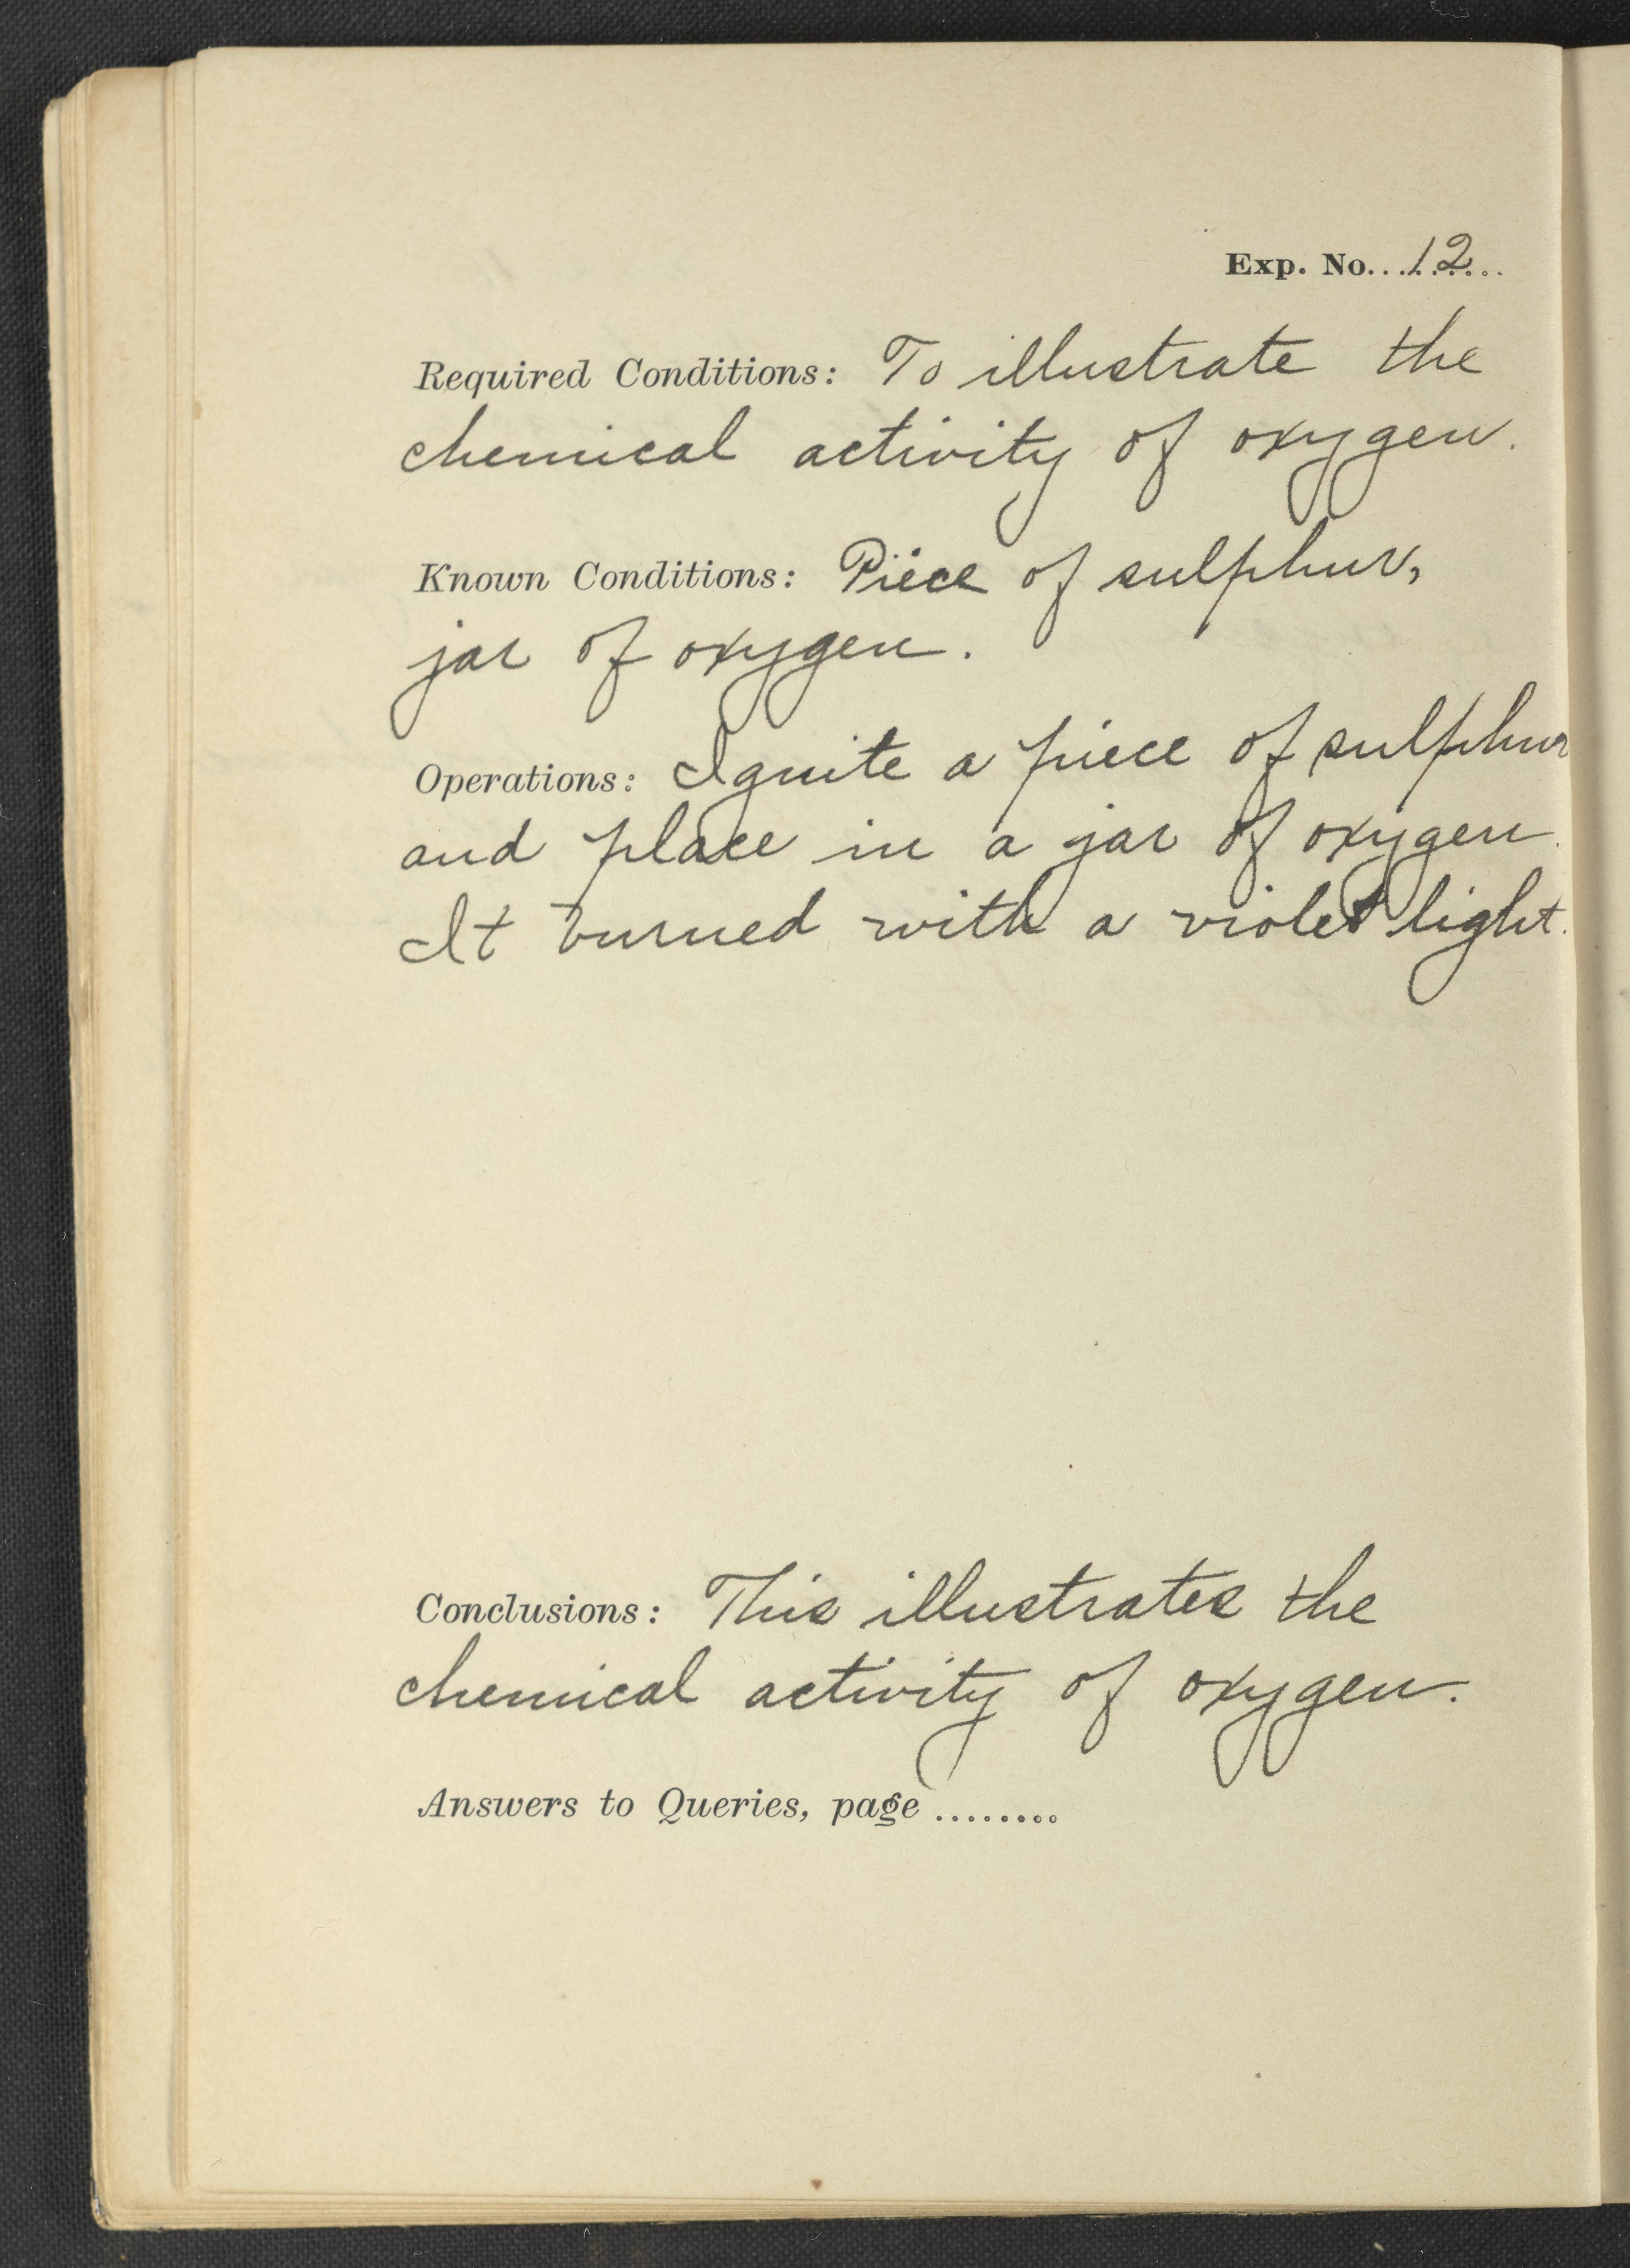 Exp. No....12....
Required Conditions: To illustrate the
chemical activity of oxygen.
Known Conditions: Piece of sulphur,
jar of oxygen.
Operations: Ignite a piece of sulphur
and place in a jar of oxygen.
It burned with a violet light.
Conclusions: This illustrates the
chemical activity of oxygen.
Answers to Queries, page ........